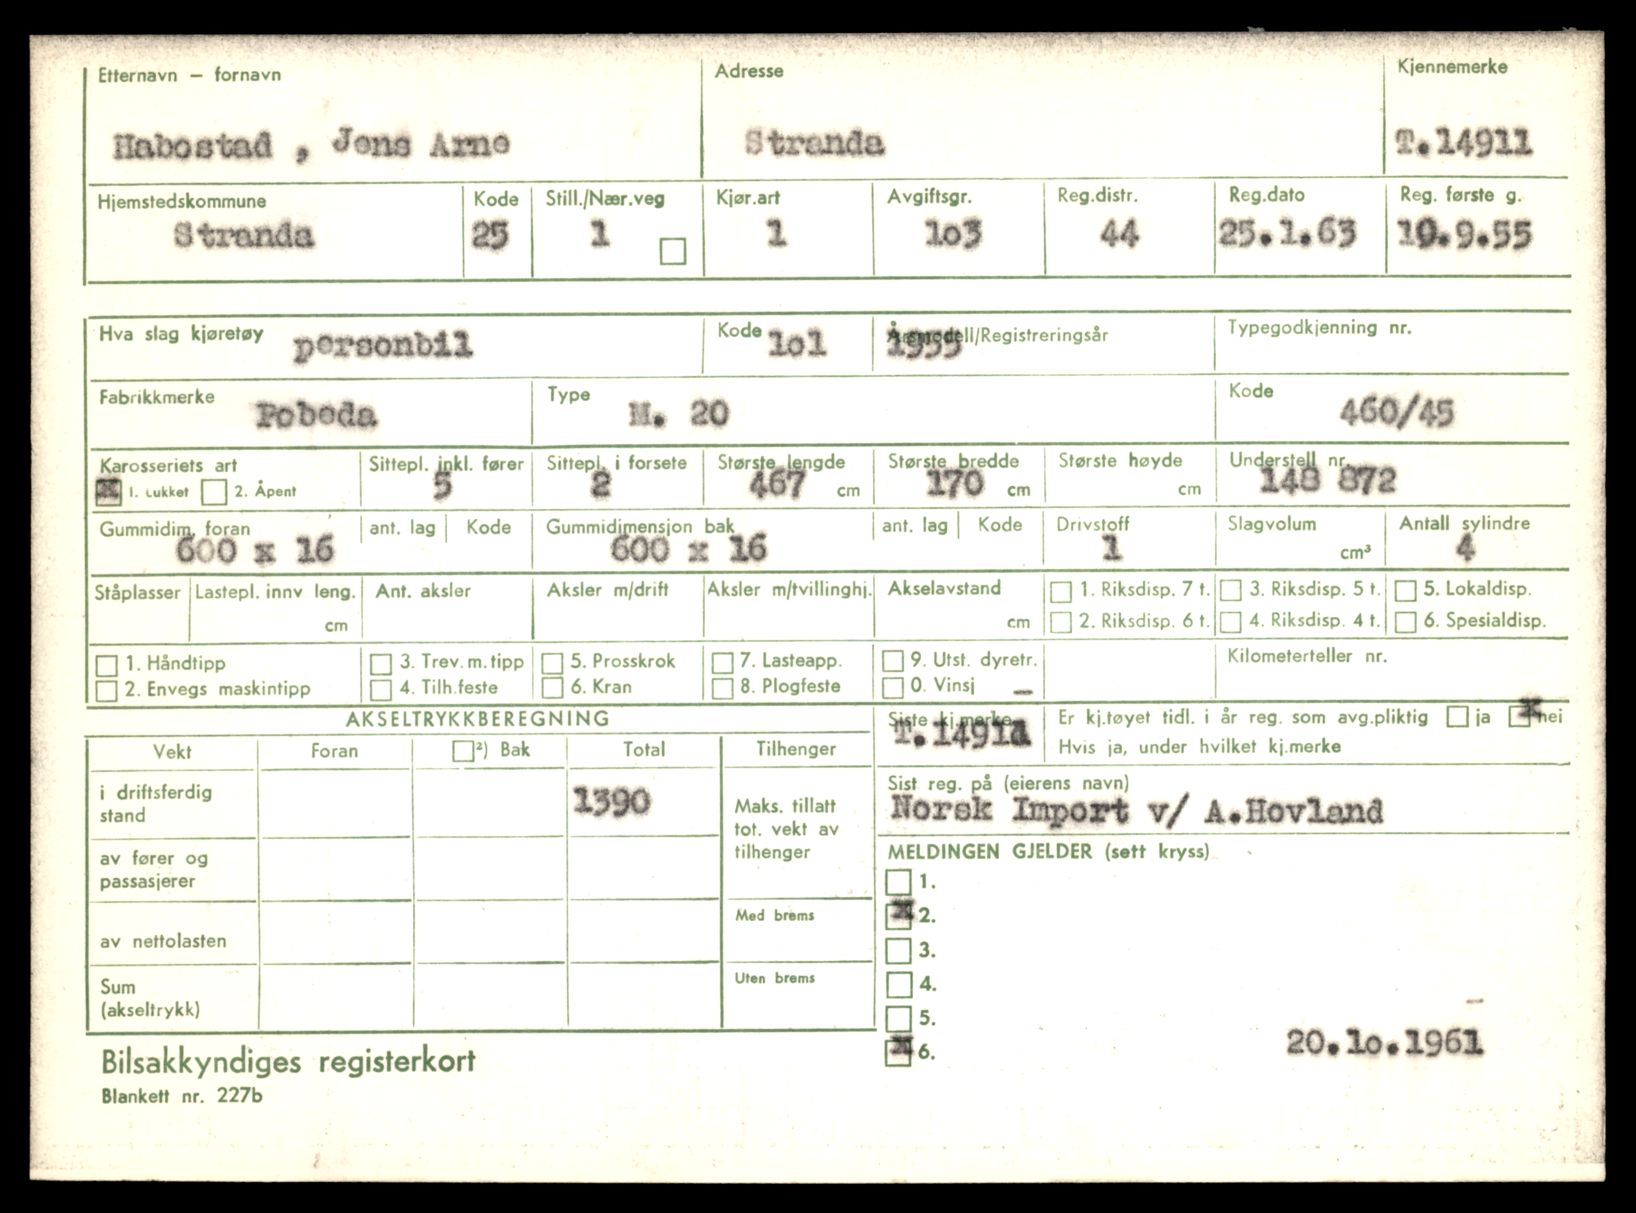 Etternavn — fornavn
Adresse
Kjennemerke
Habostad , Jens Arne
Stranda
T.14911
Hjemstedskommune
Kode
Still./Nær.veg
Kjør.art
Avgiftsgr.
Reg.distr.
Reg.dato
Reg. første g.
Stranda
25
1
1
1o3
44
25.1.63
10.9.55
Hva slag kjøretøy
personbil
Kode
1o1
Årsmodell/Registreringsår
1955
Typegodkjenning nr.
Fabrikkmerke
Pobeda
Type
M. 20
Kode
460/45
Karosseriets art
Sittepl. inkl. fører
Sittepl. i forsete
Største lengde
Største bredde
Største høyde
Understell nr.
x 1. Lukket
2. Åpent
5
2
467 cm
170 cm
cm
148 872
Gummidim. foran
ant. lag
Kode
Gummidimensjon bak
ant. lag
Kode
Drivstoff
Slagvolum
Antall sylindre
600 x 16
600 x 16
1
cm³
4
Ståplasser
Lastepl. innv leng.
cm
Ant. aksler
Aksler m/drift
Aksler m/tvillinghj.
Akselavstand
cm
1. Riksdisp. 7 t.
3. Riksdisp. 5 t.
5. Lokaldisp.
2. Riksdisp. 6 t.
4. Riksdisp. 4 t.
6. Spesialdisp.
1. Håndtipp
3. Trev. m. tipp
5. Prosskrok
7. Lasteapp.
9. Utst. dyretr.
Kilometerteller nr.
2. Envegs maskintipp
4. Tilh.feste
6. Kran
8. Plogfeste
0. Vinsj
AKSELTRYKKBEREGNING
Siste kj.merke
T.14911
Er kj.tøyet tidl. i år reg. som avg.pliktig ja x nei
Hvis ja, under hvilket kj.merke
Vekt
Foran
²) Bak
Total
Tilhenger
i driftsferdig
stand
1390
Maks. tillatt
tot. vekt av
tilhenger
Sist reg. på (eierens navn)
Norsk Import v/ A.Hovland
av fører og
passasjerer
MELDINGEN GJELDER (sett kryss)
1.
x 2.
3.
4.
5.
x 6.
Med brems
av nettolasten
Uten brems
Sum
(akseltrykk)
20.1o.1961
Bilsakkyndiges registerkort
Blankett nr. 227b